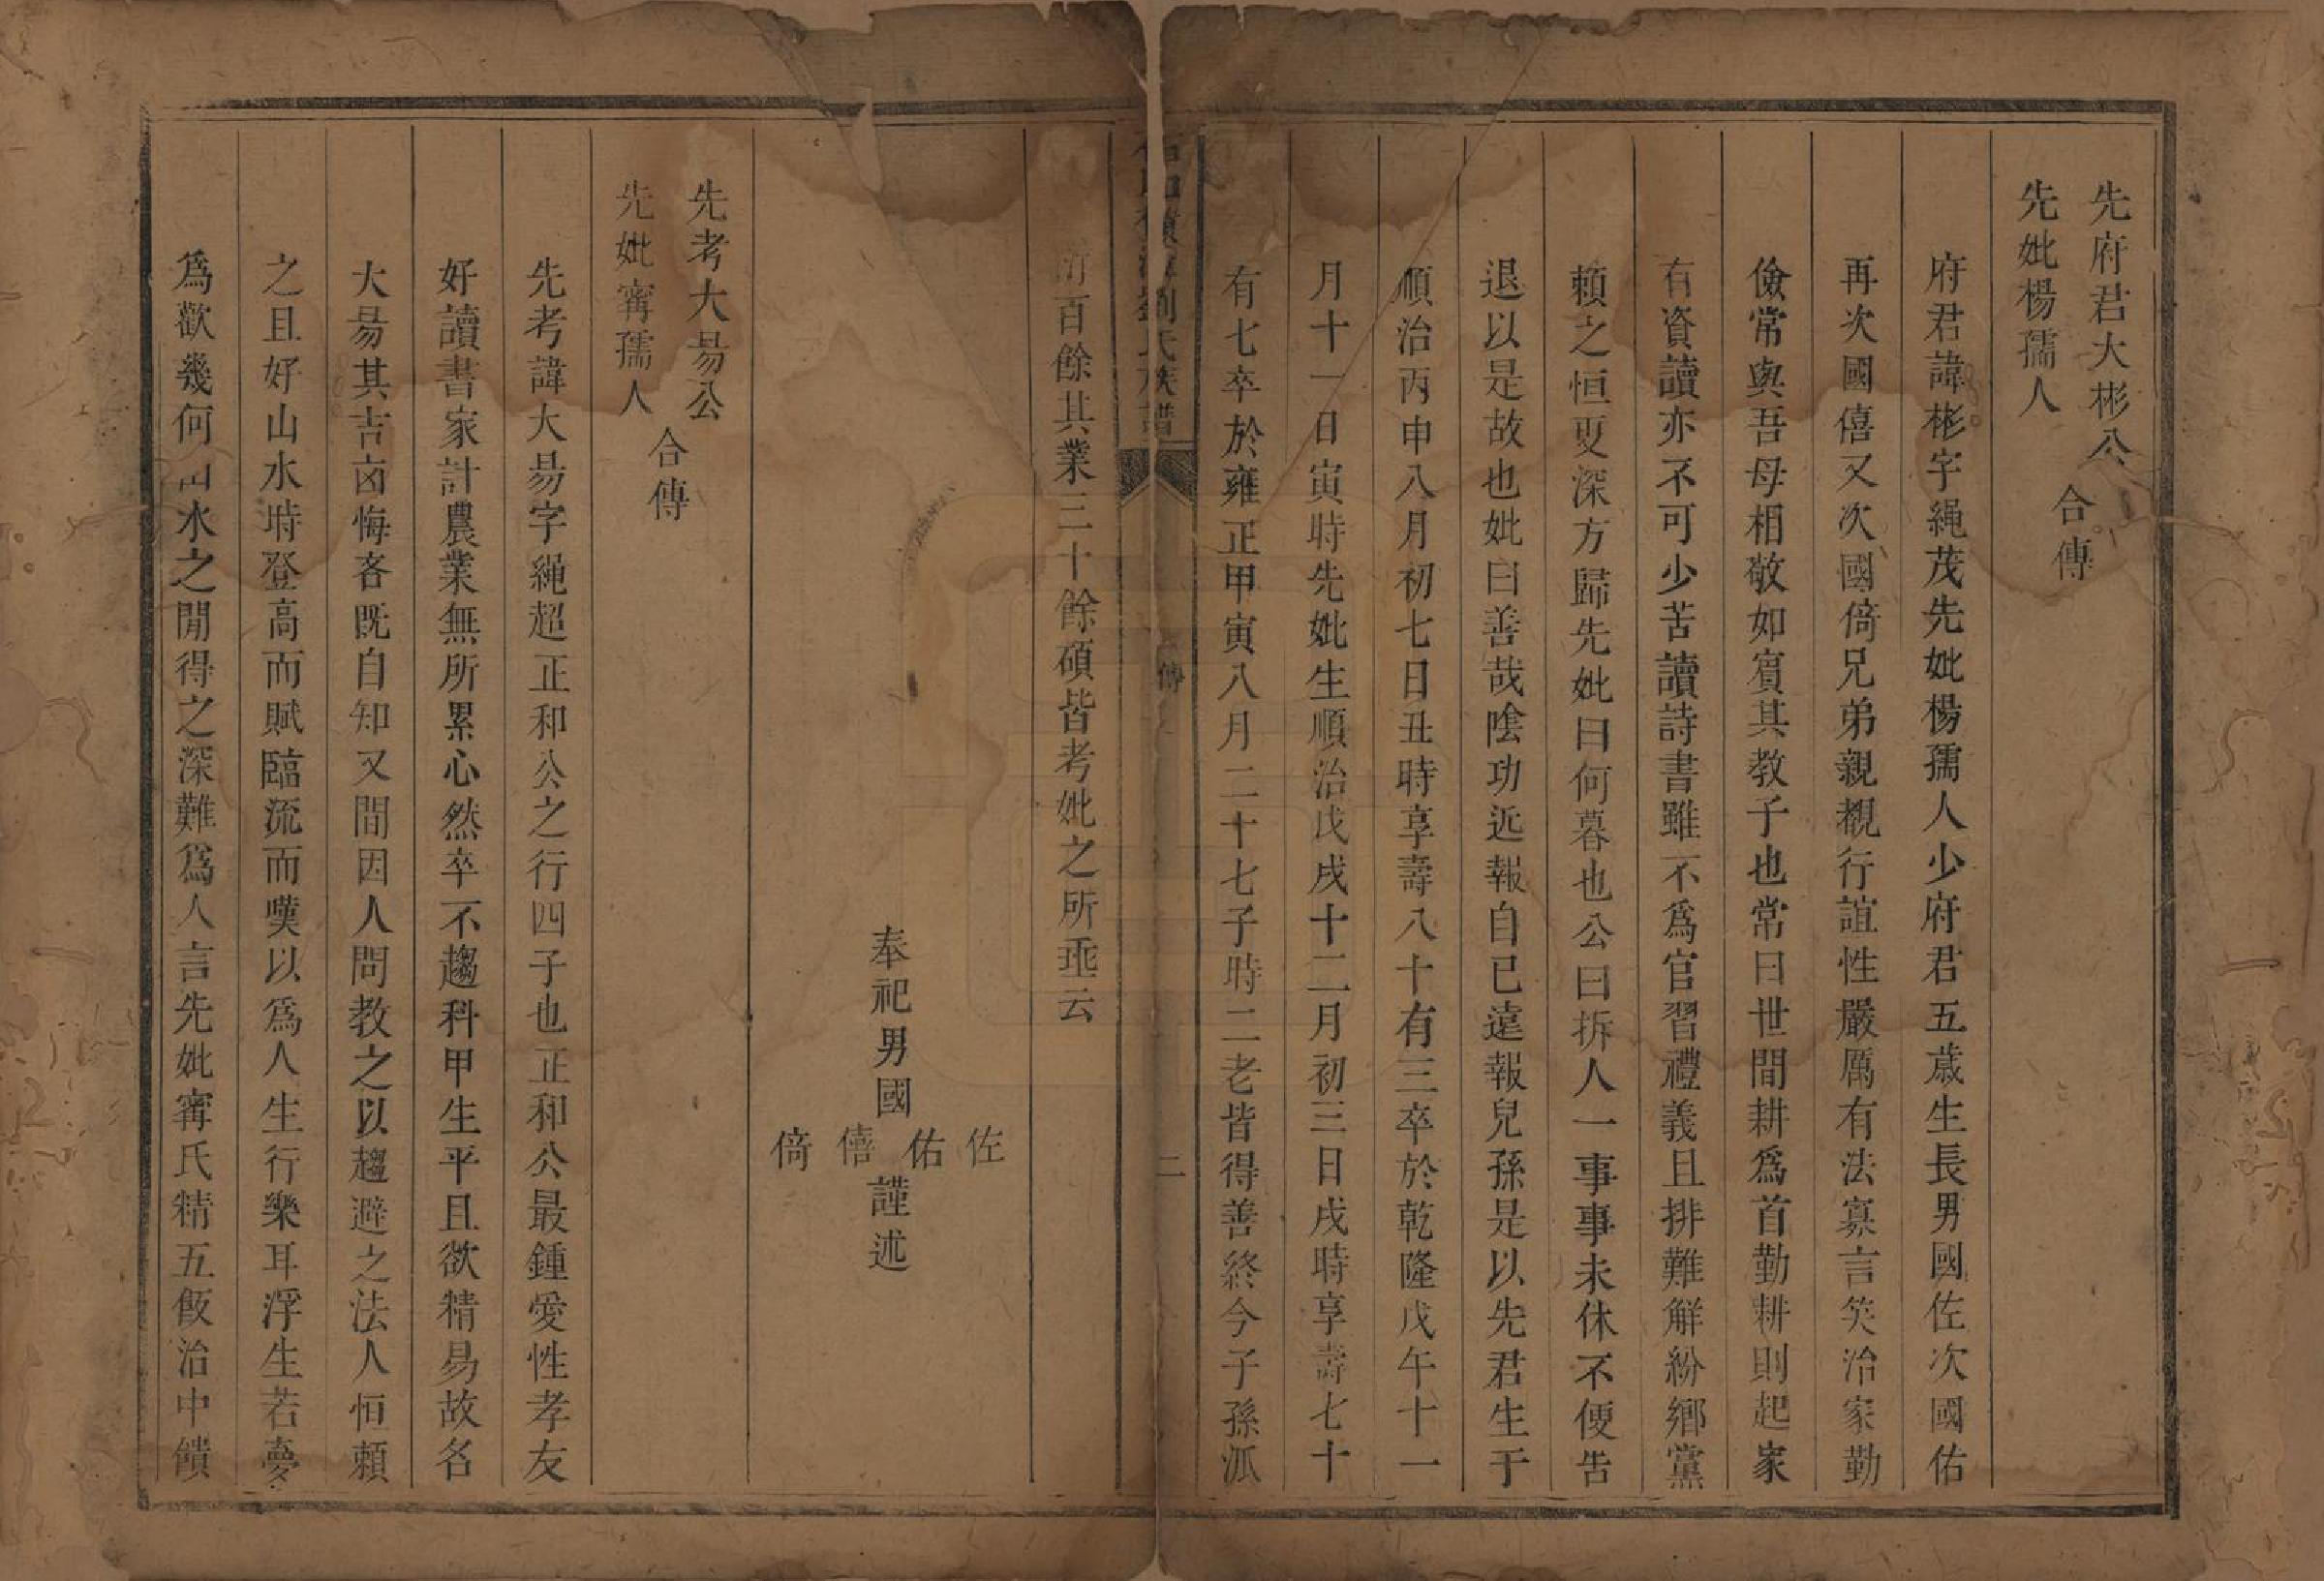 先府君大彬公
先妣楊孺人
合傳
府君諱彬字繩茂先妣楊孺人少府君五歲生長男國佐次國佑
再次國僖又次國倚兄弟親覩行誼性嚴厲有法寡言笑治家勤
儉常與吾母相敬如賓其教子也常曰世間耕爲首勤耕則起家
有資讀亦不可少苦讀詩書雖不爲官習禮義且排難解紛鄉黨
賴之恒更深方歸先妣曰何暮也公曰拆人一事事未休不便告
退以是故也妣曰善哉陰功近報自己遠報兒孫是以先君生于
順治丙申八月初七日丑時享壽八十有三卒於乾隆戊午十一
月十一日寅時先妣生順治戊戌十二月初三日戌時享壽七十
有七卒於雍正甲寅八月二十七子時二老皆得善終今子孫派
劉氏族譜
傳
二
衍百餘其業三十餘碩皆考妣之所垂云
奉祀男國
佐
佑
僖
倚
謹述
先考大昜公
先妣甯孺人
合傳
先考諱大昜字繩超正和公之行四子也正和公最鍾愛性孝友
好讀書家計農業無所累心然卒不趨科甲生平且欲精易故名
大昜其吉凶悔吝旣自知又間因人問教之以趨避之法人恒賴
之且好山水時登高而賦臨流而嘆以爲人生行樂耳浮生若夢
爲歡幾何山水之間得之深難爲人言先妣甯氏精五飯治中饋